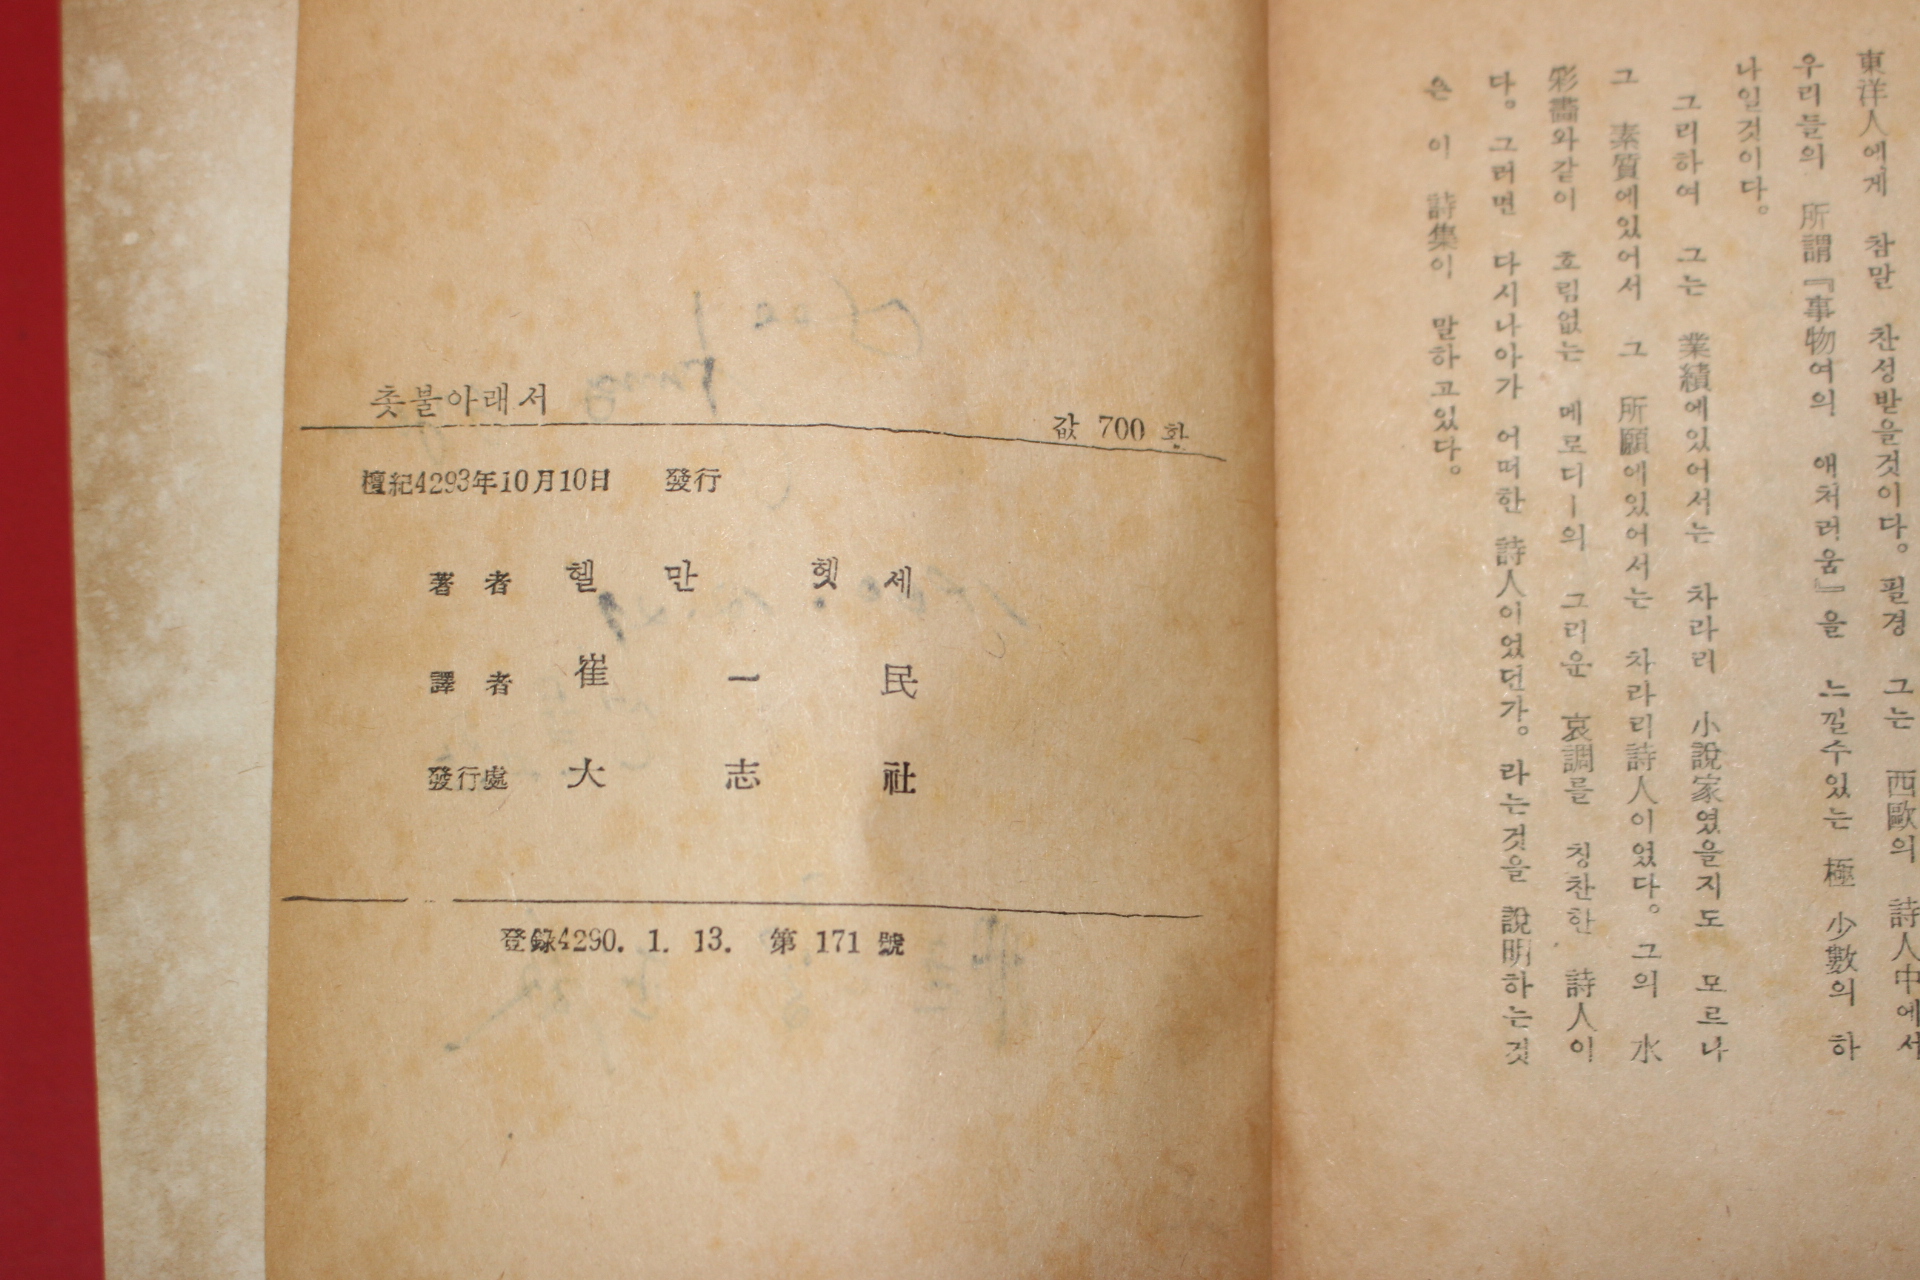 촛불아래서
값 700 환
檀紀4293年10月10日 發行
著者 헬만 헷세
譯者 崔一民
發行處 大志社
登錄4290. 1. 13. 第 171 號
東洋人에게 참말 찬성받을것이다。 필경 그는 西歐의 詩人中에서
우리들의 所謂『事物여의 애처러움』을 느낄수있는 極 少數의 하
나일것이다。
그리하여 그는 業績에있어서는 차라리 小說家였을지도 모르나
그 素質에있어서 그 所願에있어서는 차라리詩人이었다。 그의 水
彩畵와같이 흐림없는 메로디ー의 그리운 哀調를 칭찬한 詩人이
다。 그러면 다시나아가 어떠한 詩人이었던가。 라는것을 說明하는것
은 이 詩集이 말하고있다。